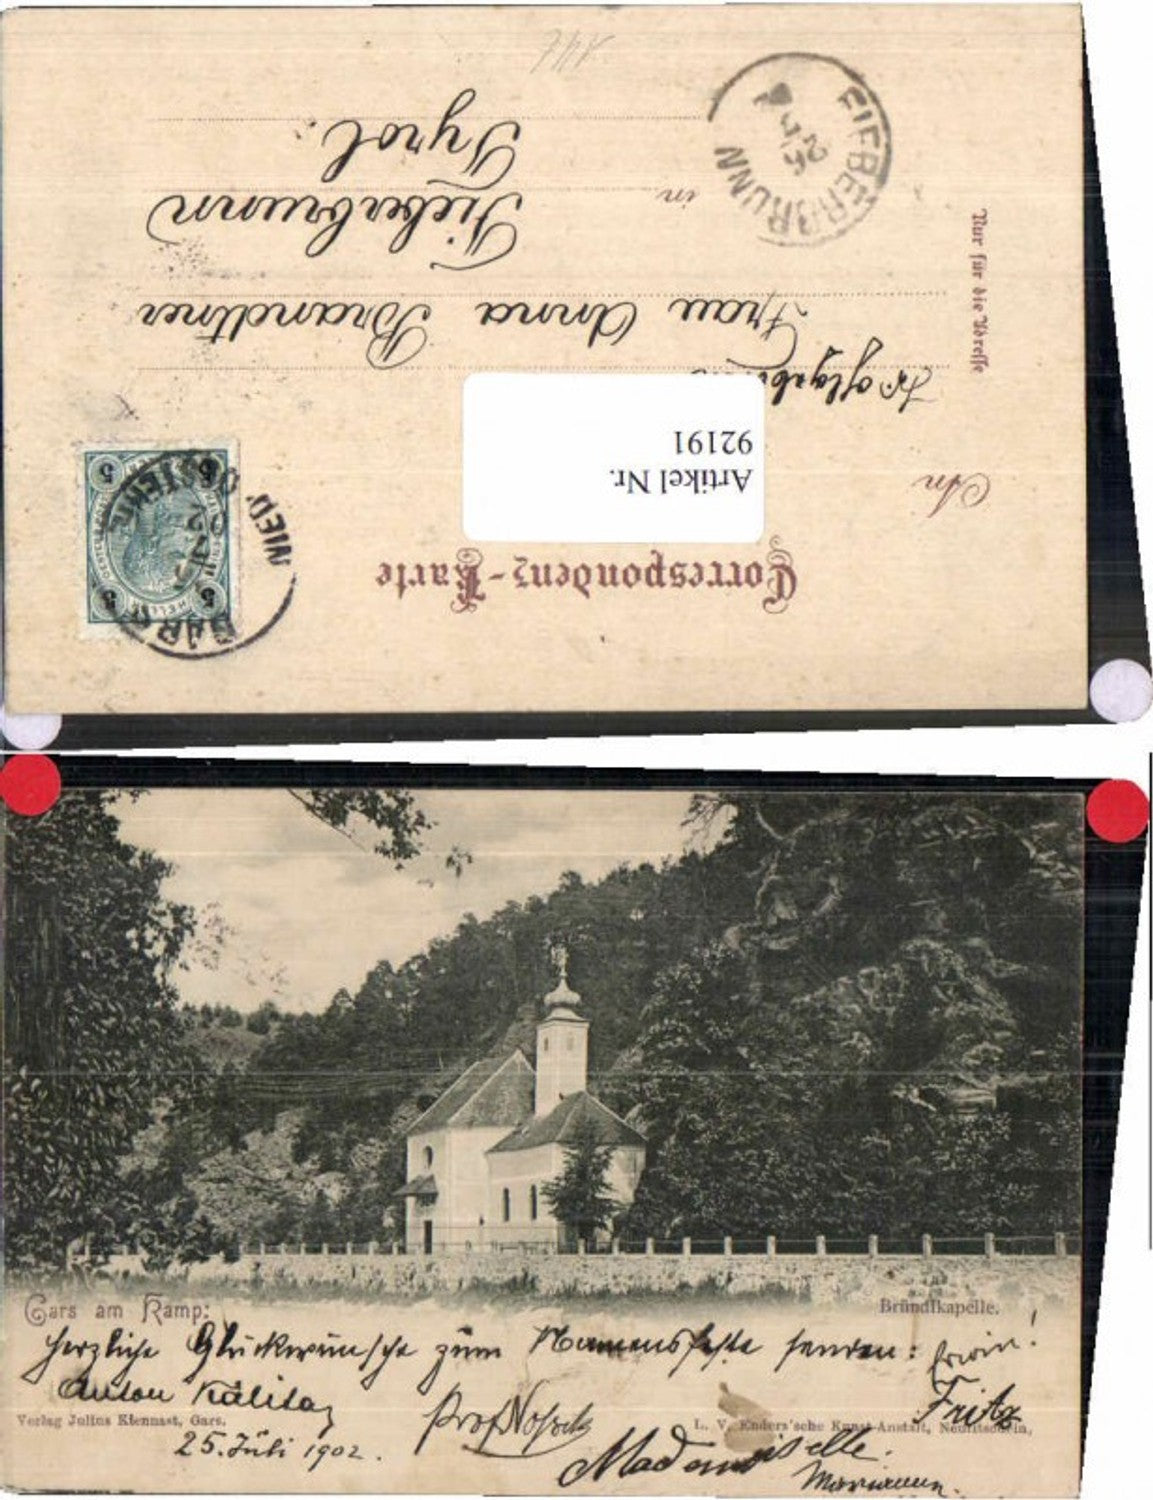 Correspondenz-Karte
Artikel Nr.
92191
An
Frau Anna Brandtner
in Fieberbrunn
Tyrol.
Nur für die Adresse
FIEBERBRUNN
GARS
NIED. OESTERR.
5 5
5 5
Gars am Kamp:
Bründlkapelle.
Herzliche Glückwünsche zum Namensfeste senden: Erwin!
Anton Kalita
Fritz
Verlag Julius Kiennast, Gars.
L. V. Enders'sche Kunst-Anstalt, Neutitschein,
25. Juli 1902.
Mademoiselle.
Marianne.